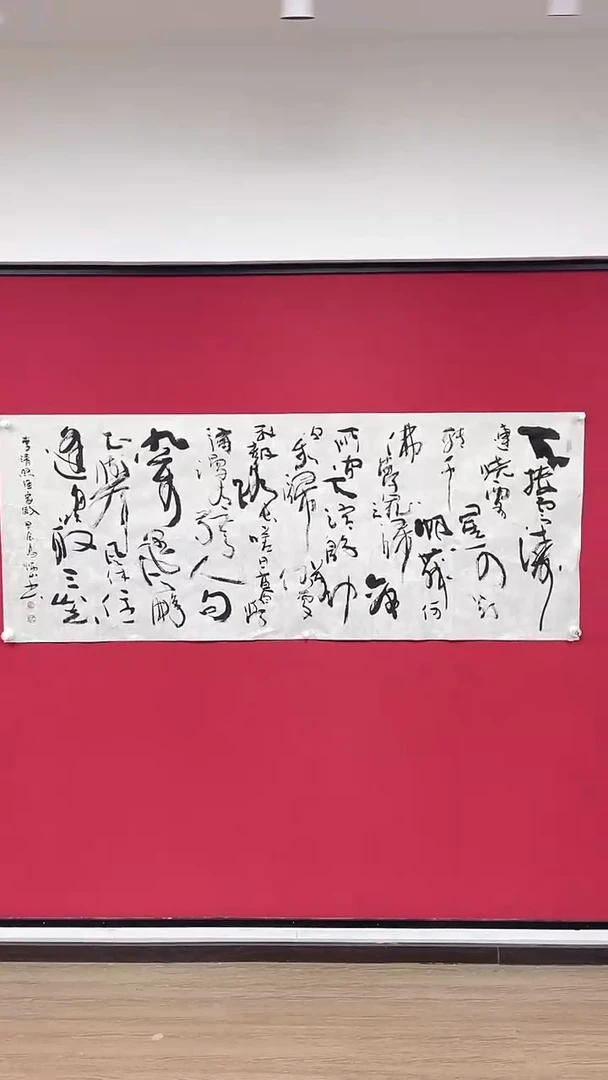 天接雲濤
連曉霧
星河欲
轉千
帆舞仿
佛夢魂歸帝
所聞天語殷勤
問我歸何處
我報路長嗟日暮學
詩謾有驚人句
九萬里風鵬
正舉風休住
蓬舟吹取三山去
李清照漁家傲